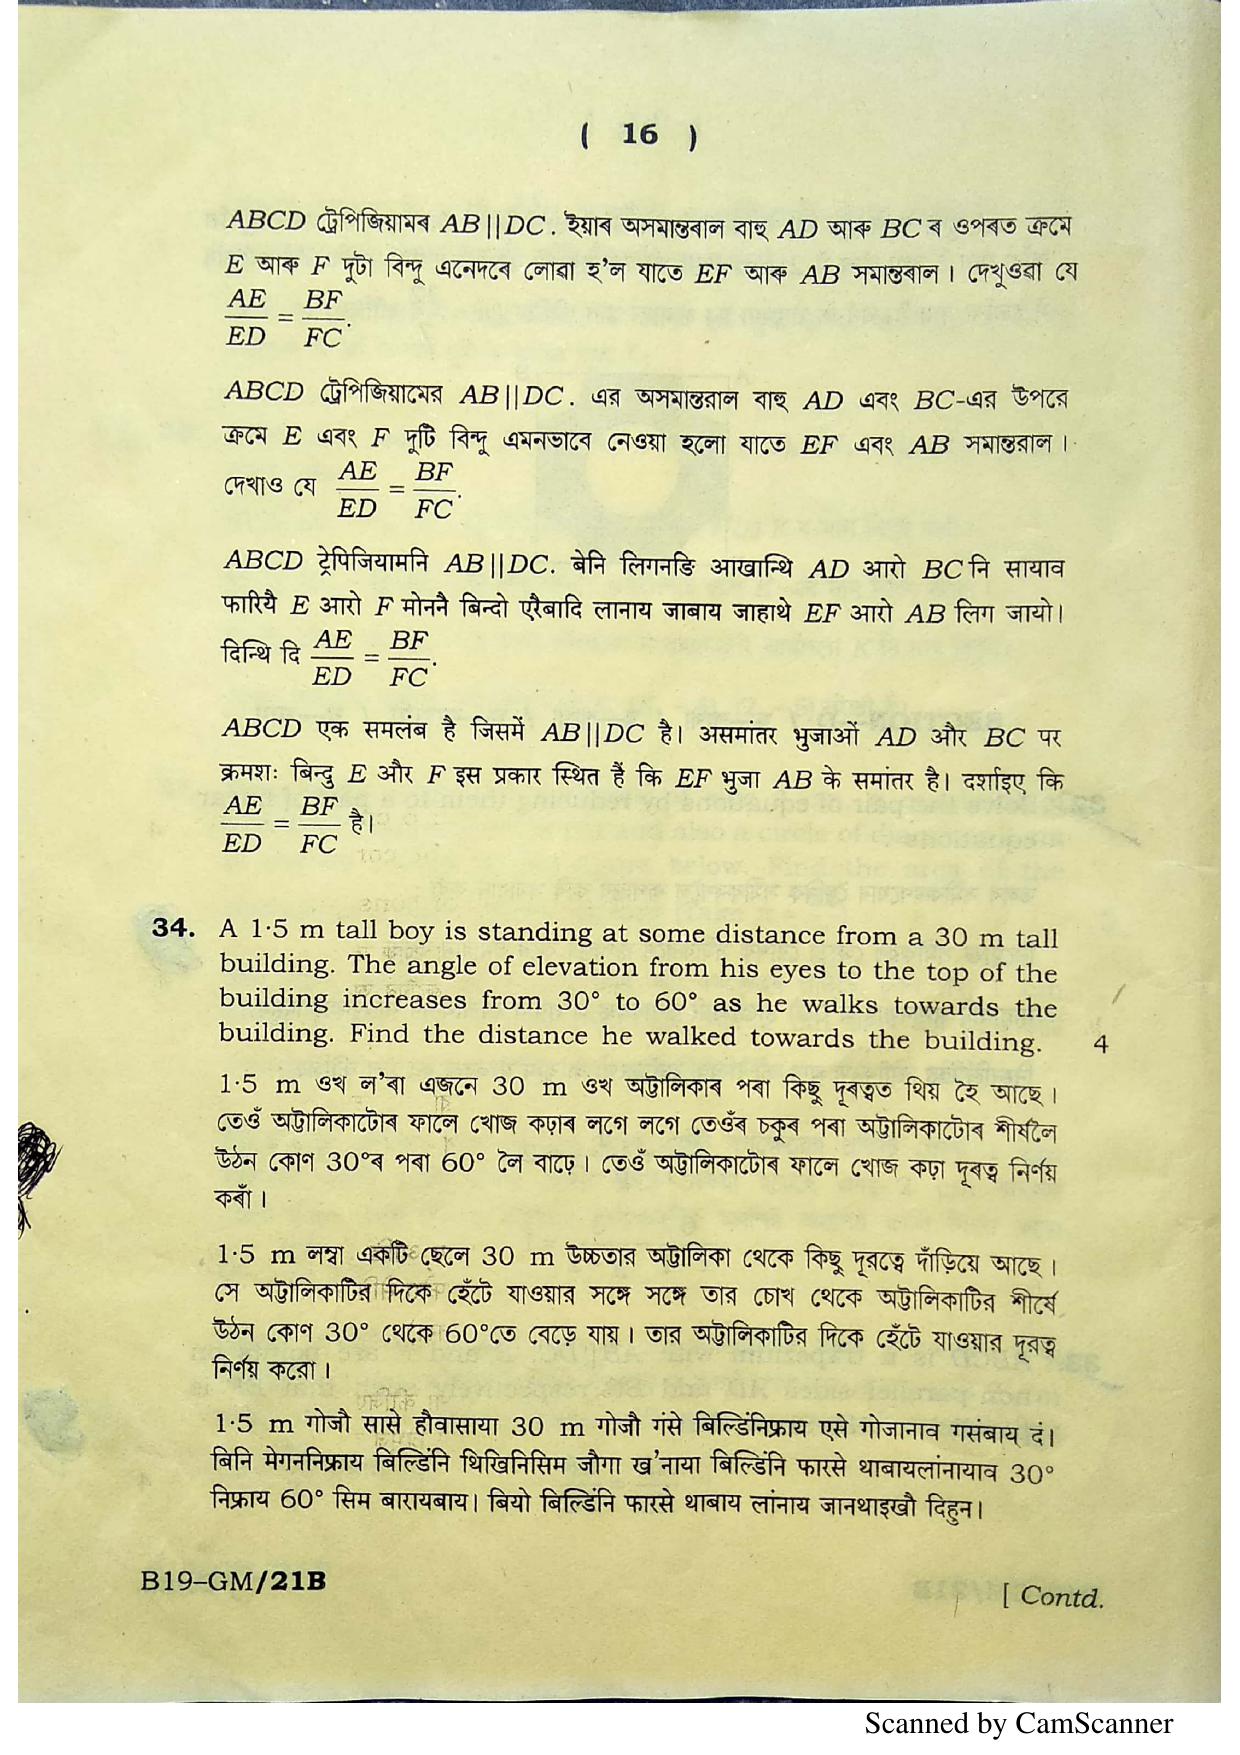 ( 16 )
ABCD ট্ৰেপিজিয়ামৰ AB||DC. ইয়াৰ অসমান্তৰাল বাহু AD আৰু BC ৰ ওপৰত ক্ৰমে
E আৰু F দুটা বিন্দু এনেদৰে লোৱা হ'ল যাতে EF আৰু AB সমান্তৰাল। দেখুওৱা যে
AE/ED = BF/FC.
ABCD ট্রেপিজিয়ামের AB||DC. এর অসমান্তরাল বাহু AD এবং BC-এর উপরে
ক্রমে E এবং F দুটি বিন্দু এমনভাবে নেওয়া হলো যাতে EF এবং AB সমান্তরাল।
দেখাও যে AE/ED = BF/FC.
ABCD ट्रेपिजियामनि AB||DC. बेनि लिगनङि आखान्थि AD आरो BC नि सायाव
फारियै E आरो F मोननै बिन्दो एरैबादि लानाय जाबाय जाहाथे EF आरो AB लिग जायो।
दिन्थि दि AE/ED = BF/FC.
ABCD एक समलंब है जिसमें AB||DC है। असमांतर भुजाओं AD और BC पर
क्रमशः बिन्दु E और F इस प्रकार स्थित हैं कि EF भुजा AB के समांतर है। दर्शाइए कि
AE/ED = BF/FC है।
34. A 1·5 m tall boy is standing at some distance from a 30 m tall
building. The angle of elevation from his eyes to the top of the
building increases from 30° to 60° as he walks towards the
building. Find the distance he walked towards the building. 4
1·5 m ওখ ল'ৰা এজনে 30 m ওখ অট্টালিকাৰ পৰা কিছু দূৰত্বত থিয় হৈ আছে।
তেওঁ অট্টালিকাটোৰ ফালে খোজ কঢ়াৰ লগে লগে তেওঁৰ চকুৰ পৰা অট্টালিকাটোৰ শীৰ্ষলৈ
উঠন কোণ 30°ৰ পৰা 60° লৈ বাঢ়ে। তেওঁ অট্টালিকাটোৰ ফালে খোজ কঢ়া দূৰত্ব নিৰ্ণয়
কৰাঁ।
1·5 m লম্বা একটি ছেলে 30 m উচ্চতার অট্টালিকা থেকে কিছু দূরত্বে দাঁড়িয়ে আছে।
সে অট্টালিকাটির দিকে হেঁটে যাওয়ার সঙ্গে সঙ্গে তার চোখ থেকে অট্টালিকাটির শীর্ষে
উঠন কোণ 30° থেকে 60°তে বেড়ে যায়। তার অট্টালিকাটির দিকে হেঁটে যাওয়ার দূরত্ব
নির্ণয় করো।
1·5 m गोजौ सासे हौवासाया 30 m गोजौ गंसे बिल्डिंनिफ्राय एसे गोजानाव गसंबाय दं।
बिनि मेगननिफ्राय बिल्डिंनि थिखिनिसिम जौगा ख'नाया बिल्डिंनि फारसे थाबायलांनायाव 30°
निफ्राय 60° सिम बारायबाय। बियो बिल्डिंनि फारसे थाबाय लांनाय जानथाइखौ दिहुन।
B19–GM/21B
[ Contd.
Scanned by CamScanner